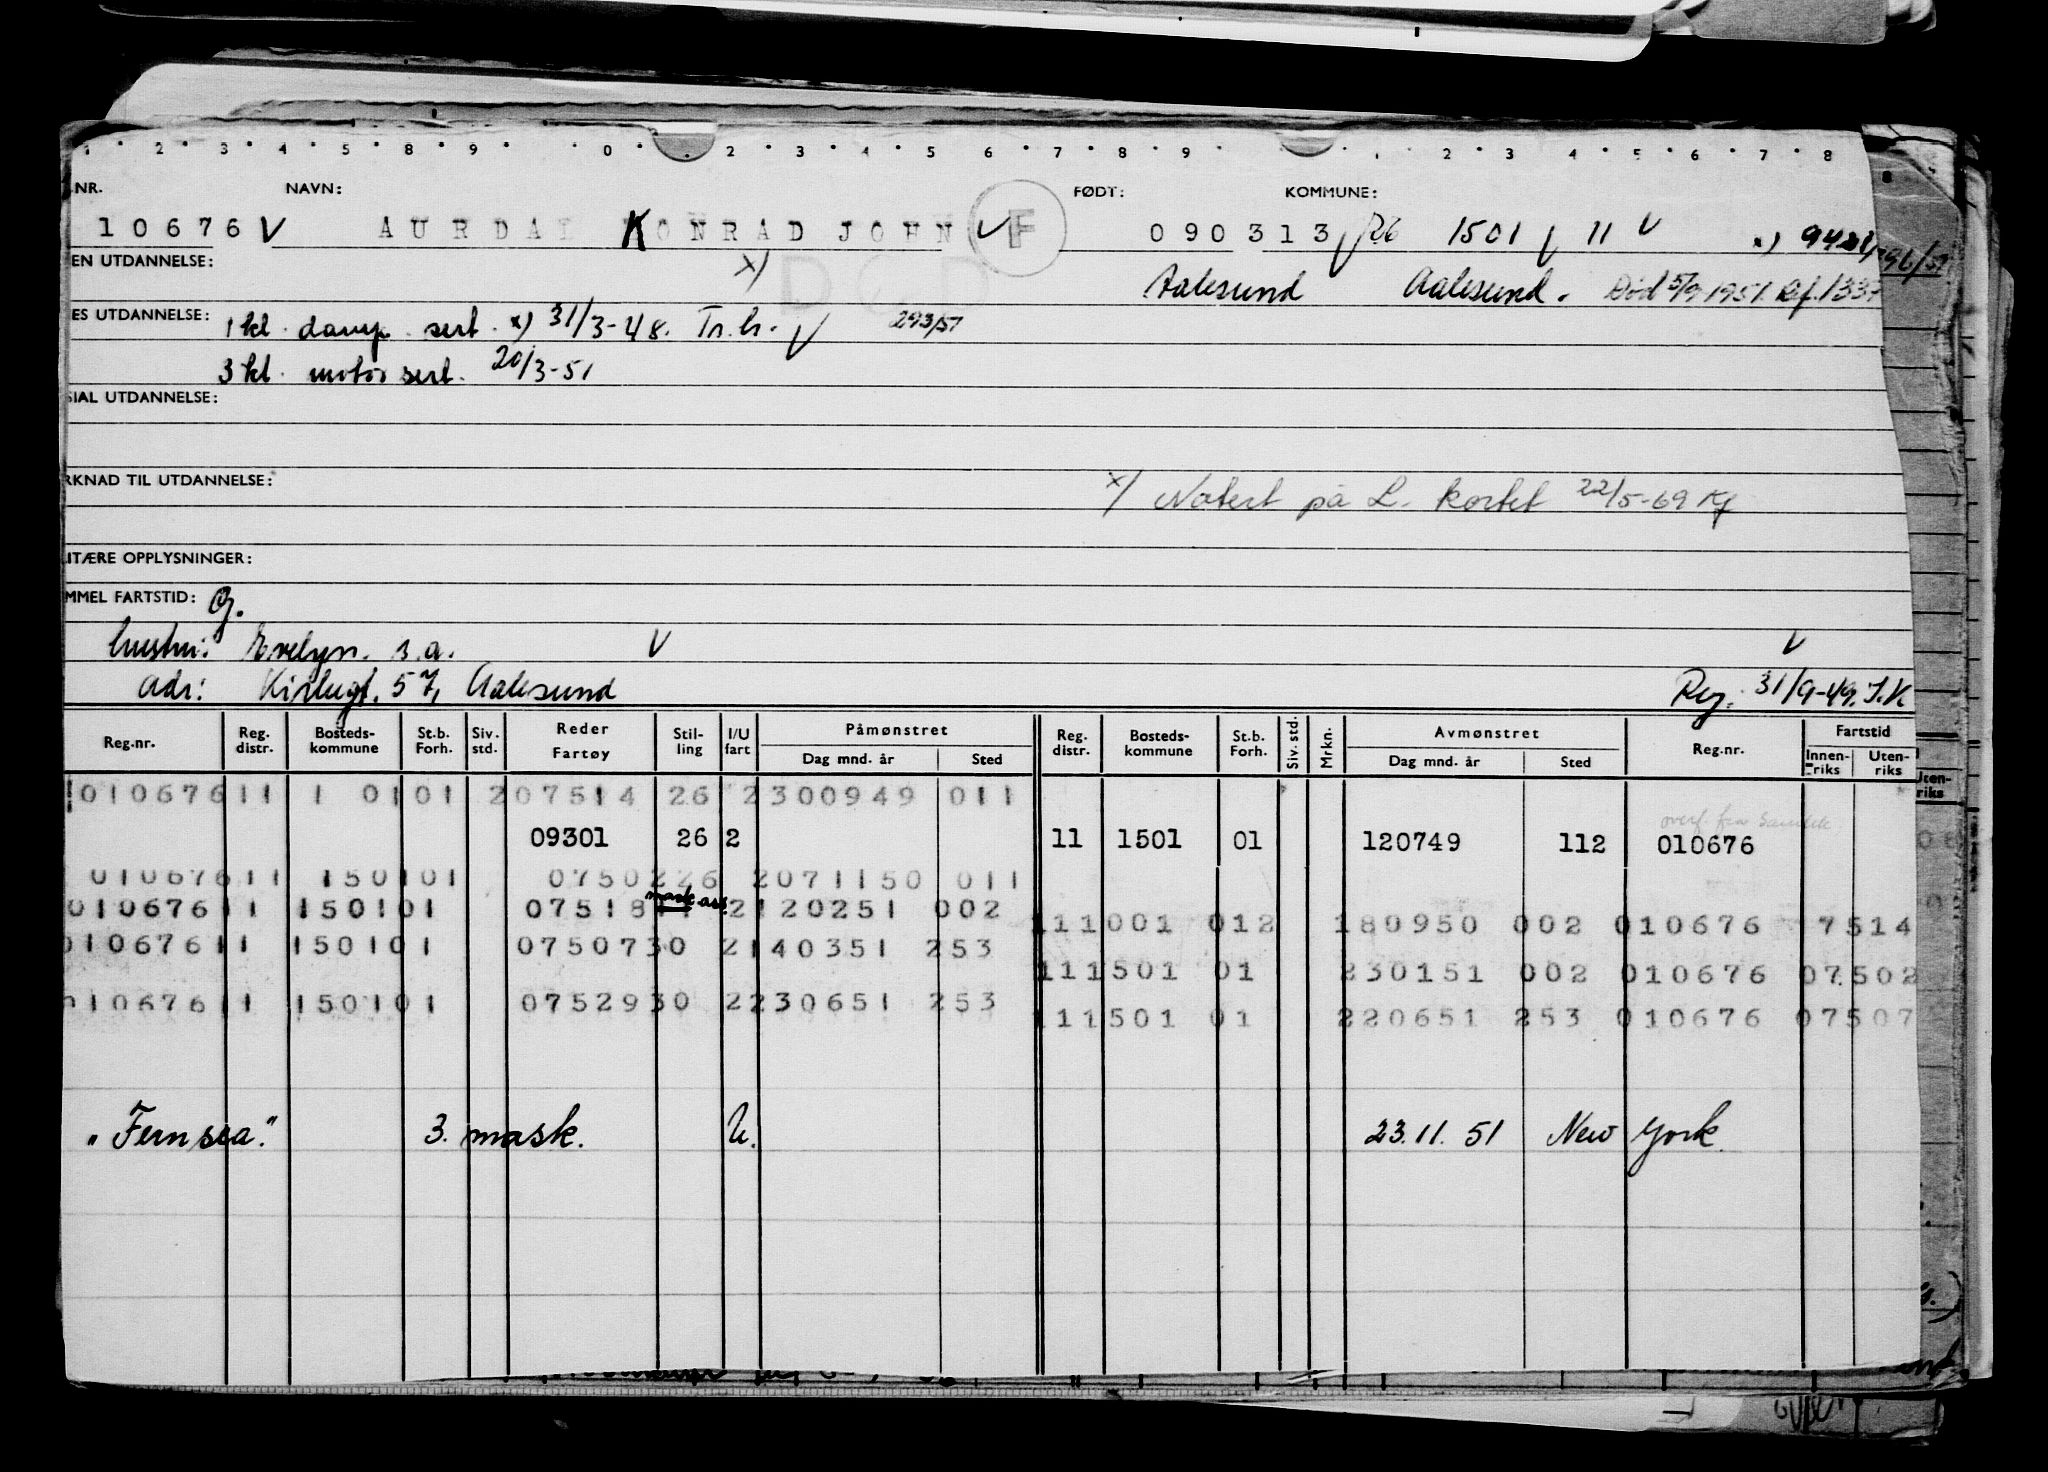 1 2 3 4 5 8 9 0 2 3 4 5 6 7 8 9 1 2 3 4 5 6 7 8
.NR. NAVN: FØDT: KOMMUNE:
10676 V AURDAL KONRAD JOHN V F 090313 1501 11 V x) 9421
EN UTDANNELSE: x) DØD Aalesund Aalesund. Død 5/9 1951. Ref. 1337 296/51
ES UTDANNELSE: 1 kl. damp. sert. x) 31/3-48. Tr.h. V 293/51
3 kl. motor sert. 20/3-51
SIAL UTDANNELSE:
RKNAD TIL UTDANNELSE: x) Notert på L. kortet 22/5-69 Kf
ITÆRE OPPLYSNINGER:
MMEL FARTSTID: Og.
hustru: Evelyn. s.a. V V
adr: Kirkegt. 57, Aalesund Reg. 31/9-49. I.K
Reg.nr. Reg. distr. Bosteds-kommune St.b. Forh. Siv. std. Reder Fartøy Stil-ling I/U fart Påmønstret Dag mnd. år Sted Reg. distr. Bosteds-kommune St.b. Forh. Siv. std. Mrkn. Avmønstret Dag mnd. år Sted Reg.nr. Fartstid Innen-riks Uten-riks
010676 11 1 01 01 2 07514 26 2 300949 011
overf. fra Samlek
09301 26 2 11 1501 01 120749 112 010676
010676 11 1501 01 07502 26 2 071150 011
mask ass.
010676 11 1501 01 07518 2 120251 002
11 1001 012 180950 002 010676 7514
010676 11 1501 01 07507 30 2 140351 253
11 1501 01 230151 002 010676 07502
010676 11 1501 01 07529 30 2 230651 253
11 1501 01 220651 253 010676 07507
"Fernsea". 3. mask. U. 23.11.51 New York.